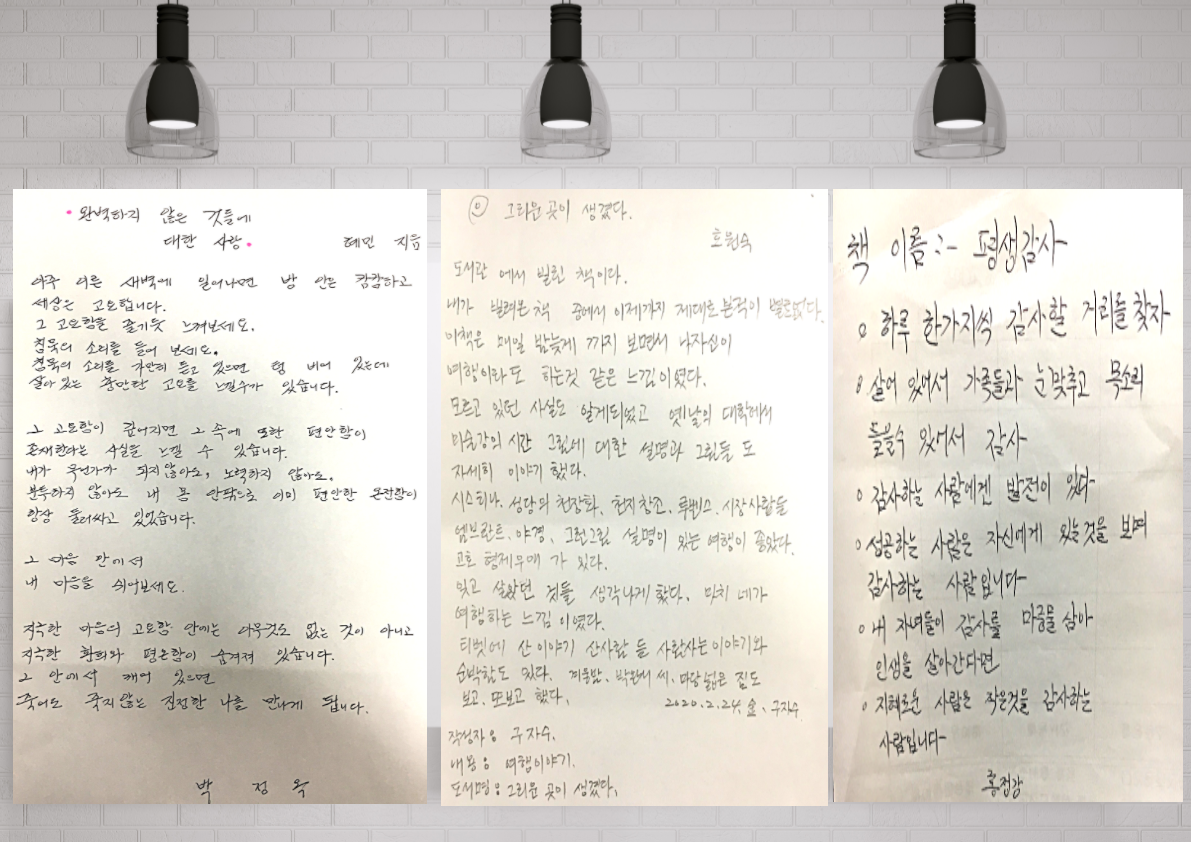 완벽하지 않은 것들에
대한 사랑. 혜민 지음
아주 이른 새벽에 일어나면 방 안은 캄캄하고
세상은 고요합니다.
그 고요함을 즐기듯 느껴보세요.
침묵의 소리를 들어 보세요.
침묵의 소리를 가만히 듣고 있으면 텅 비어 있는데
살아있는 충만한 고요를 느낄수가 있습니다.
그 고요함이 깊어지면 그 속에 또한 편안함이
존재한다는 사실을 느낄 수 있습니다.
내가 무언가가 되지않아도, 노력하지 않아도.
분투하지 않아도 내 몸 안팎으로 이미 편안한 온전함이
항상 둘러싸고 있었습니다.
그 마음 안에서
내 마음을 쉬어보세요.
지극한 마음의 고요함 안에는 아무것도 없는 것이 아니고
지극한 환희와 평온함이 숨겨져 있습니다.
그 안에서 깨어 있으면
죽어도 죽지않는 진정한 나를 만나게 됩니다.
박 정 옥
그리운 곳이 생겼다.
호원숙
도서관 에서 빌린 책이다.
내가 빌려온 책 중에서 이제까지 제대로 본적이 별로없다.
이책은 매일 밤늦게 까지 보면서 나자신이
여행이라도 하는것 같은 느낌이였다.
모르고 있던 사실도 알게되었고 옛날의 대학에서
미술강의 시간 그림에 대한 설명과 그림들 도
자세히 이야기 했다.
시스티나. 성당의 천장화. 천지창조. 루벤스. 시장사람들
렘브란트. 야경. 그런그림 설명이 있는 여행이 좋았다.
고흐 형제우애 가 있다.
잊고 살았던 것들 생각나게 했다. 마치 네가
여행하는 느낌 이였다.
티벳에 산 이야기 산사람 들 사람사는이야기와
순박함도 있다. 겨울밤. 박완서 씨. 마당넓은 집도
보고. 또보고 했다. 2020.2.24. 金. 구자수
작성자: 구자수.
내용: 여행이야기.
도서명: 그리운 곳이 생겼다.
책 이름:- 평생감사
하루 한가지씩 감사할 거리를 찾자
살아 있어서 가족들과 눈맞추고 목소리
들을수 있어서 감사
감사하는 사람에겐 발전이 있다
성공하는 사람은 자신에게 있는것을 보며
감사하는 사람입니다
내 자녀들이 감사를 마중물 삼아
인생을 살아간다면
지혜로운 사람은 작은것을 감사하는
사람입니다
홍정강